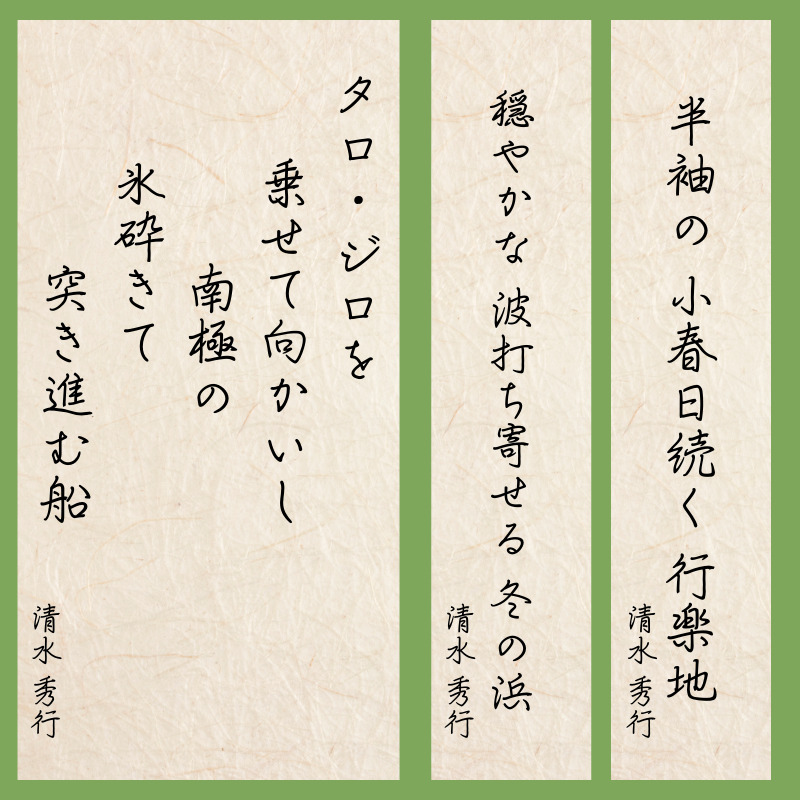 半袖の 小春日続く 行楽地
清水 秀行
穏やかな 波打ち寄せる 冬の浜
清水 秀行
タロ・ジロを
乗せて向かいし
南極の
氷砕きて
突き進む船
清水 秀行